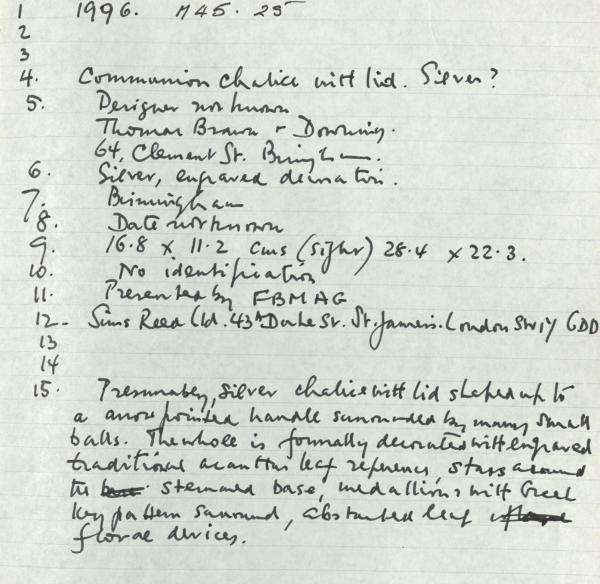 1 1996. M45. 25
2
3
4. Communion chalice with lid. Silver?
5. Designer not known
Thomas Brown + Downing.
64, Clement St. Birmingham.
6. Silver, engraved decoration.
7. Birmingham
8. Date not known
9. 16.8 x 11.2 cms (sight) 28.4 x 22.3.
10. No identification
11. Presented by FBMAG
12- Sims Reed Ltd. 43A Duke St. St. James's. London SW1Y 6DD
13
14
15. Presumably, silver chalice with lid shaped up to
a pointed handle surrounded by many small
balls. The whole is formally decorated with engraved
traditional acanthus leaf reference, stars around
the stemmed base, medallions with Greek
key pattern surround, abstracted leaf
florae devices.